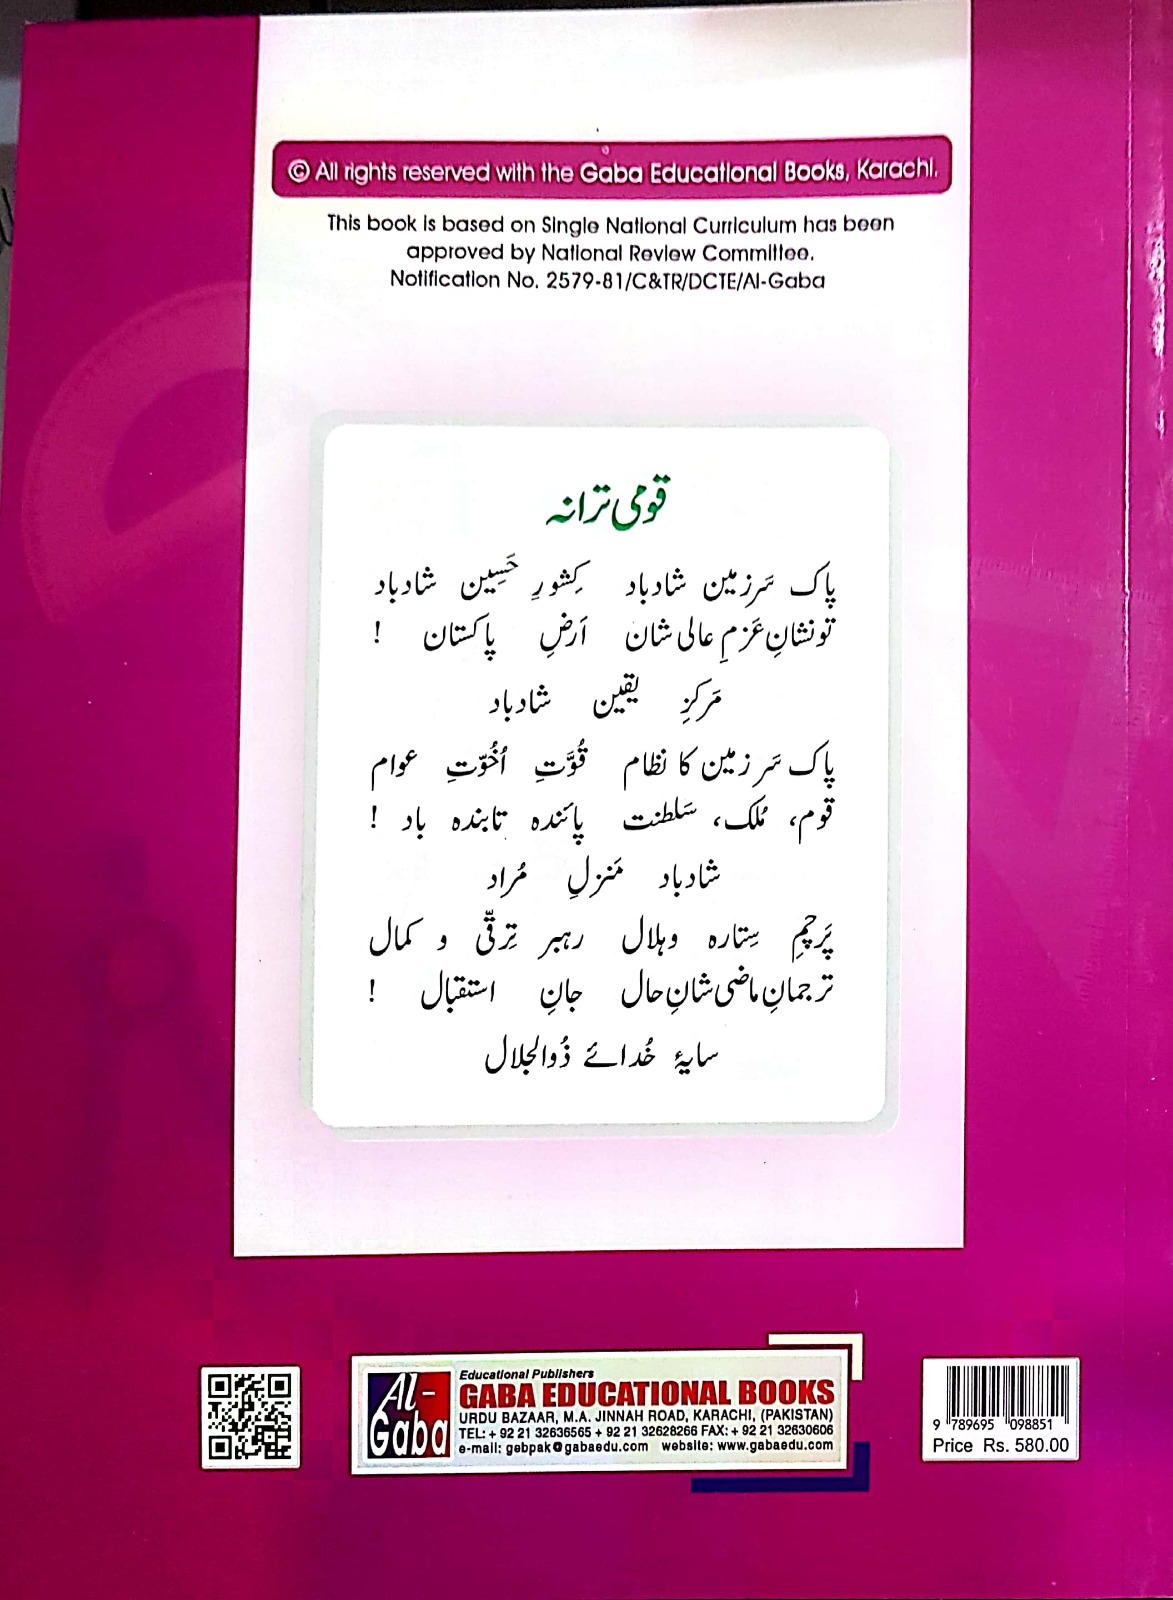 © All rights reserved with the Gaba Educational Books, Karachi.
This book is based on Single National Curriculum has been
approved by National Review Committee.
Notification No. 2579-81/C&TR/DCTE/Al-Gaba
قومی ترانہ
پاک سَرزمین شادباد کِشورِ حَسِین شادباد
تو نشانِ عَزمِ عالی شان اَرضِ پاکستان !
مَرکزِ یقین شادباد
پاک سَرزمین کا نظام قُوَّتِ اُخُوّتِ عوام
قوم، مُلک، سَلطنت پائندہ تابندہ باد !
شادباد مَنزلِ مُراد
پَرچمِ سِتارہ وہلال رہبر تِرقّی و کمال
ترجمانِ ماضی شانِ حال جانِ استقبال !
سایۂ خُدائے ذُوالجلال
Al-Gaba
Educational Publishers
GABA EDUCATIONAL BOOKS
URDU BAZAAR, M.A. JINNAH ROAD, KARACHI, (PAKISTAN)
TEL: + 92 21 32636565 + 92 21 32628266 FAX: + 92 21 32630606
e-mail: gebpak@gabaedu.com website: www.gabaedu.com
9 789695 098851
Price Rs. 580.00